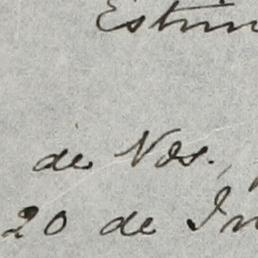 Estim
de Nos.,
20 de In